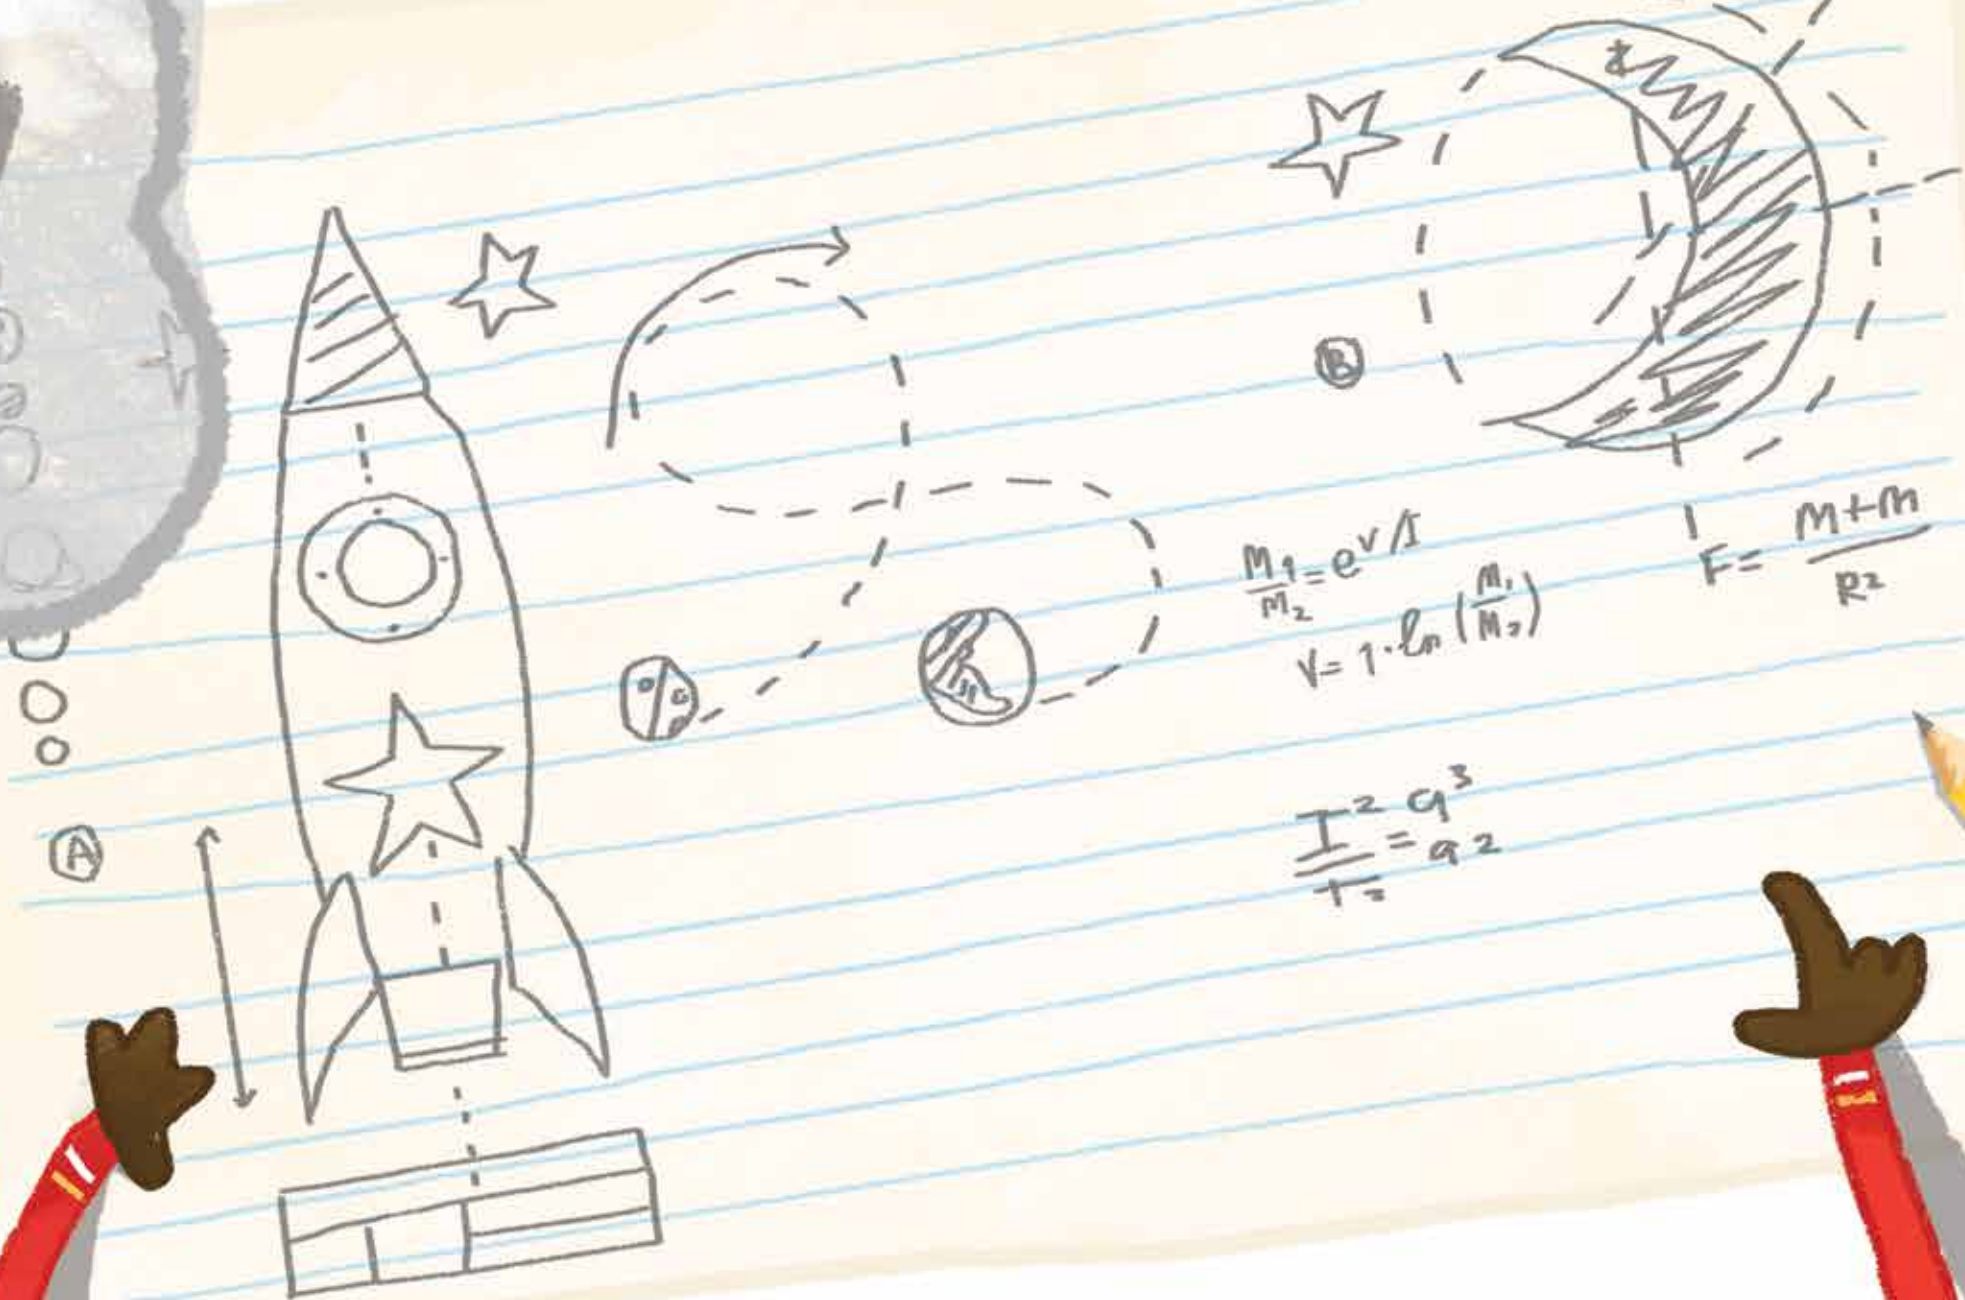 B
M1/M2 = e^V/I
V = 1·ln (M1/M2)
F = M+M/R2
A
I² = a³
T= a2